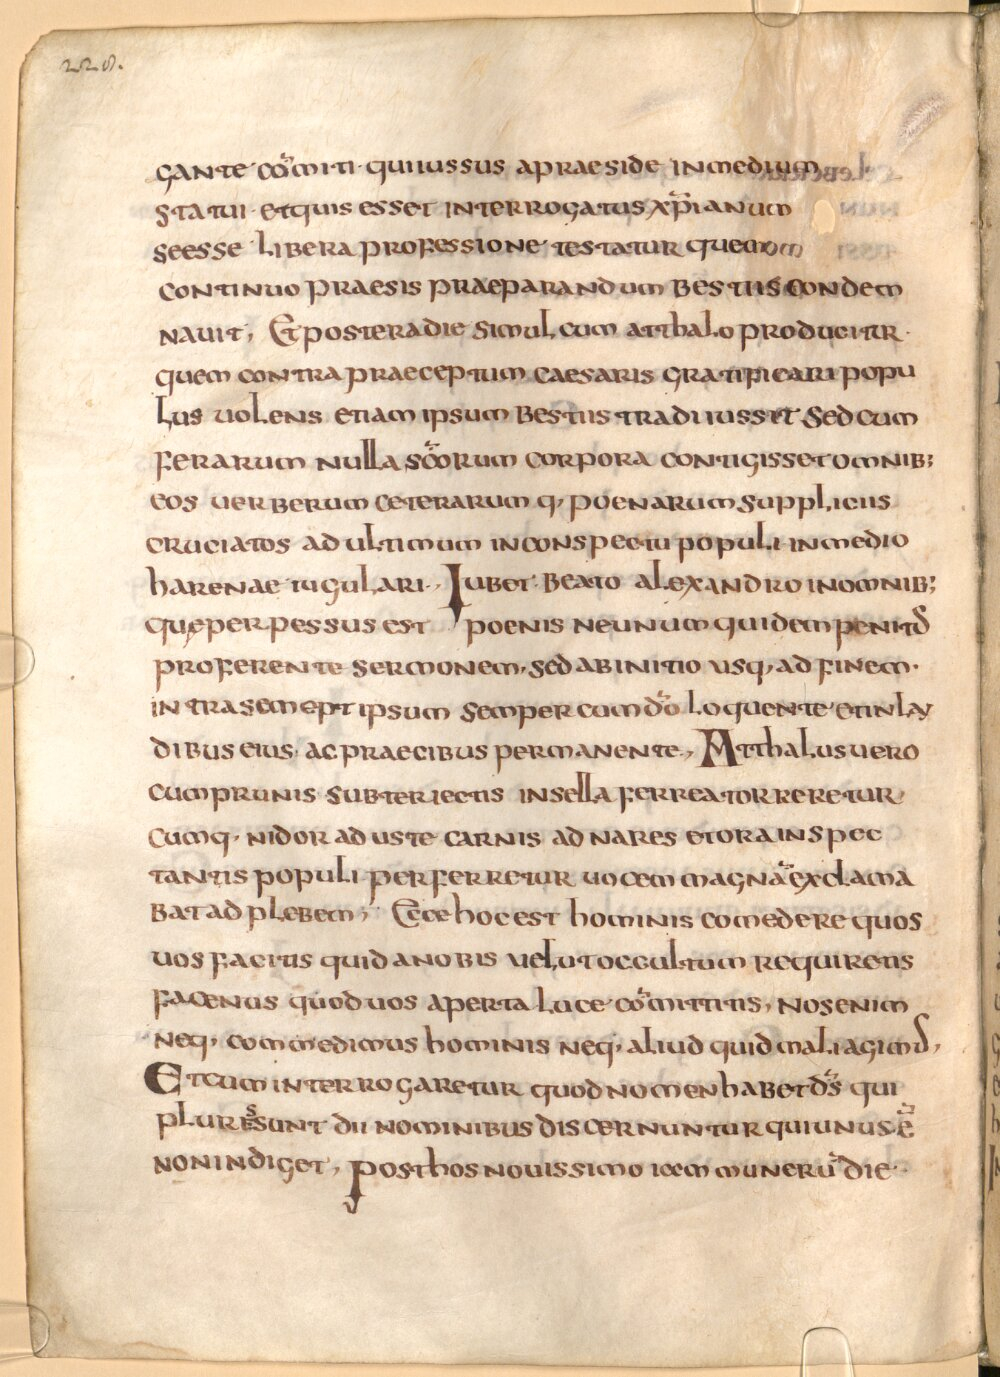 228.
gante com̄iti· qui iussus a praeside in medium
statui· et quis esset interrogatus xp̄ianum
se esse libera professione testatur quem
continuo praesis praeparandum bestiis condem
nauit, Et postera die simul cum atthalo producitur·
quem contra praeceptum caesaris gratificari popu
lus uolens etiam ipsum bestiis tradi iussit sed cum
ferarum nulla sc̄orum corpora contigisset omnib;
eos uerberum ceterarum q, poenarum suppliciis
cruciatos ad ultimum in conspectu populi in medio
harenae iugulari·, Iubet beato alexandro in omnib;
quę perpessus est poenis ne unum quidem penitus
proferente sermonem, sed ab initio usq, ad finem·
intra semept ipsum semper cum dō loquente et in lau
dibus eius· ac praecibus permanente, Atthalus uero
cum prunis subter iectis in sella ferrea torreretur
cumq, nidor adustę carnis ad nares et ora inspec
tantis populi perferretur uocem magnā exclama
bat ad plebem, Ecce hoc est hominis comedere quos
uos facitis quid a nobis uelut occultum requiretis
facenus quod uos aperta luce com̄ittitis, nos enim
neq, commedimus hominis neq, aliud quid mali agimus,
Et cum interrogaretur quod nomen habet ds̄ qui
plures sunt dii nominibus discernuntur qui unus ē
non indiget, post hos nouissimo iam munerū die·